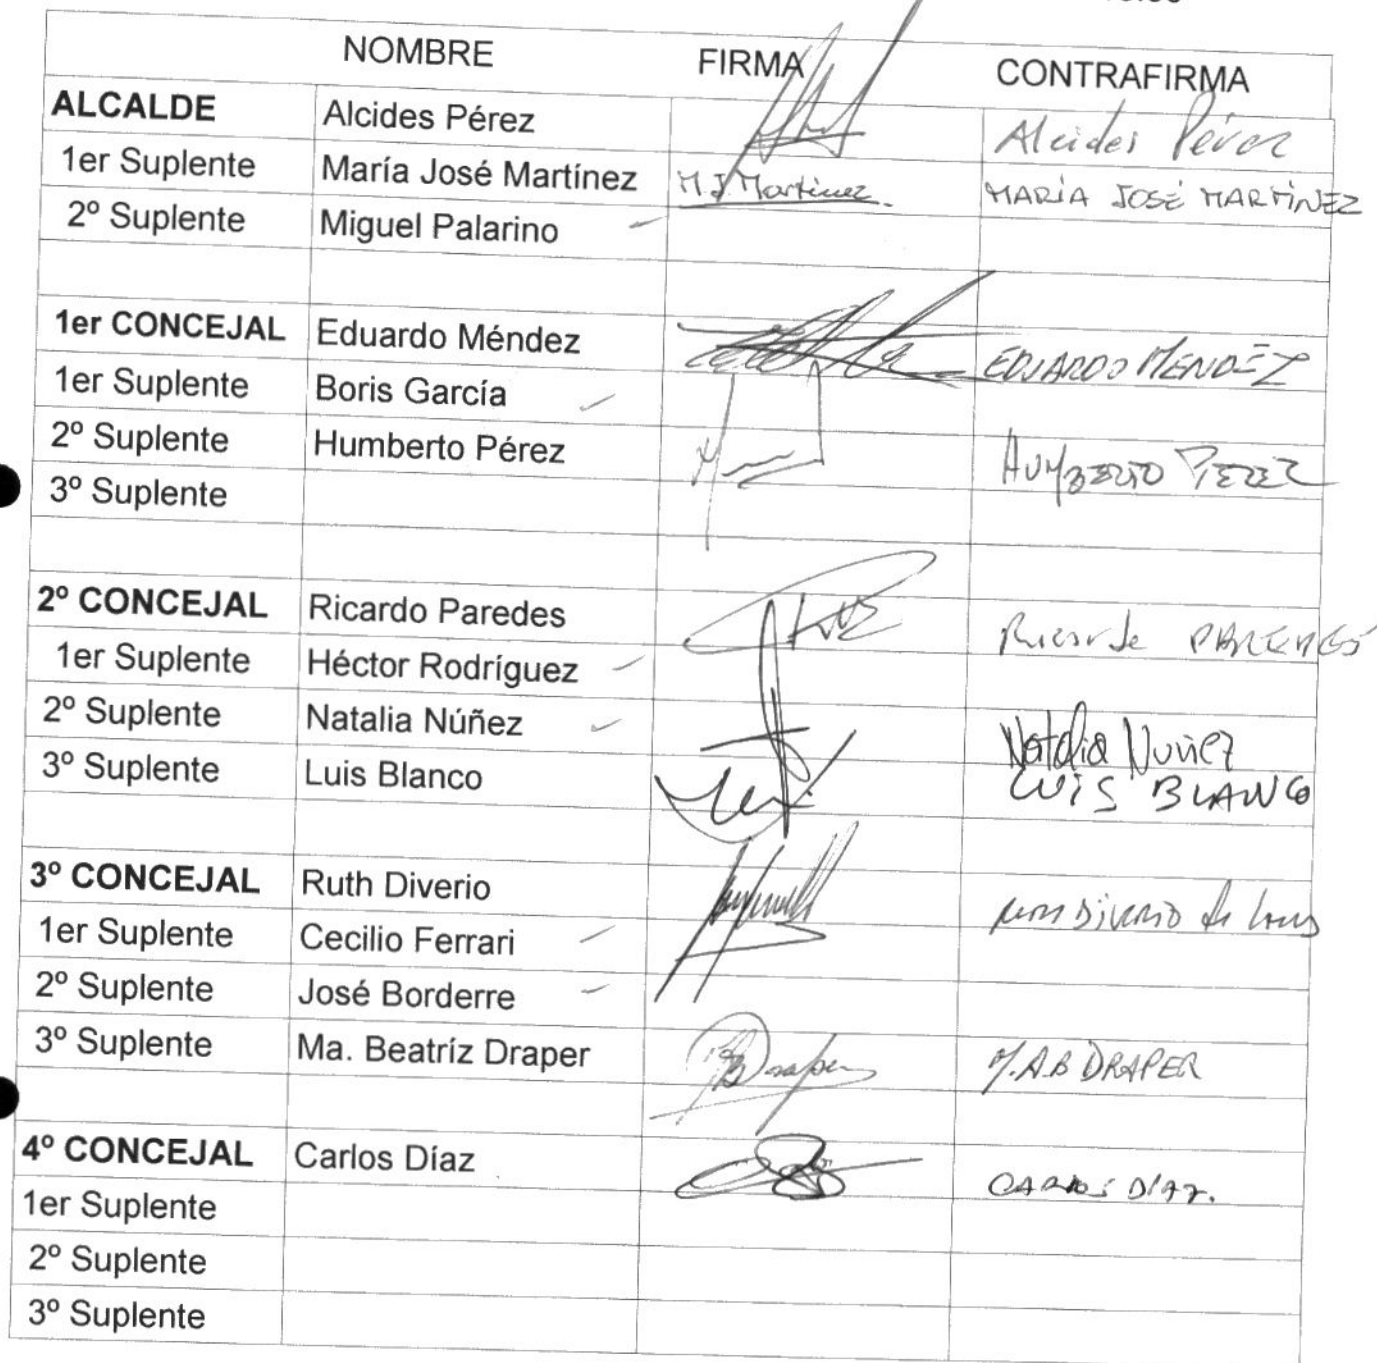 NOMBRE FIRMA CONTRAFIRMA
ALCALDE Alcides Pérez Alcides Pérez
1er Suplente María José Martínez M.J. Martinez. MARÍA JOSÉ MARTÍNEZ
2º Suplente Miguel Palarino
1er CONCEJAL Eduardo Méndez EDUARDO MENDÉZ
1er Suplente Boris García
2º Suplente Humberto Pérez HUMBERTO PEREZ
3º Suplente
2º CONCEJAL Ricardo Paredes PAREDES
1er Suplente Héctor Rodríguez
2º Suplente Natalia Núñez Natalia Nuñez
3º Suplente Luis Blanco LUIS BLANCO
3º CONCEJAL Ruth Diverio Diverio de
1er Suplente Cecilio Ferrari
2º Suplente José Borderre
3º Suplente Ma. Beatríz Draper Draper M.A.B DRAPER
4º CONCEJAL Carlos Díaz CARLOS DÍAZ.
1er Suplente
2º Suplente
3º Suplente